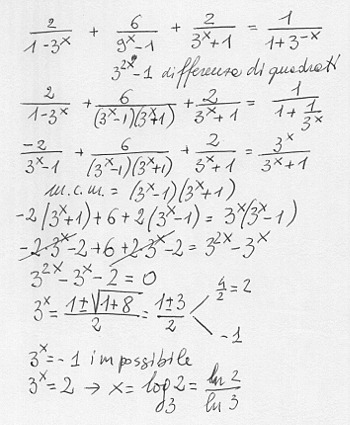 2/(1-3^x) + 6/(9^x-1) + 2/(3^x+1) = 1/(1+3^-x)
3^2x-1 differenza di quadrati
2/(1-3^x) + 6/((3^x-1)(3^x+1)) + 2/(3^x+1) = 1/(1+1/3^x)
-2/(3^x-1) + 6/((3^x-1)(3^x+1)) + 2/(3^x+1) = 3^x/(3^x+1)
m.c.m. = (3^x-1)(3^x+1)
-2(3^x+1)+6+2(3^x-1) = 3^x(3^x-1)
-2·3^x-2+6+2·3^x-2 = 3^2x-3^x
3^2x-3^x-2=0
3^x = (1±√(1+8))/2 = (1±3)/2 4/2=2
-1
3^x=-1 impossibile
3^x=2 → x=log_3 2 = ln 2/ln 3